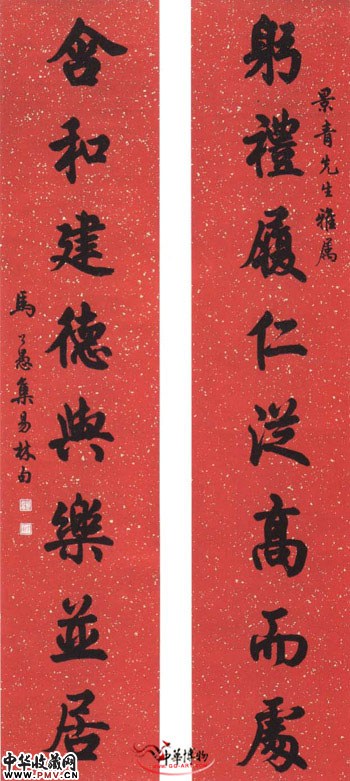 景青先生雅属
躬禮履仁從高而處
含和建德與樂並居
馬公愚集易林句
中华收藏网
www.PMV.CN
中華博物